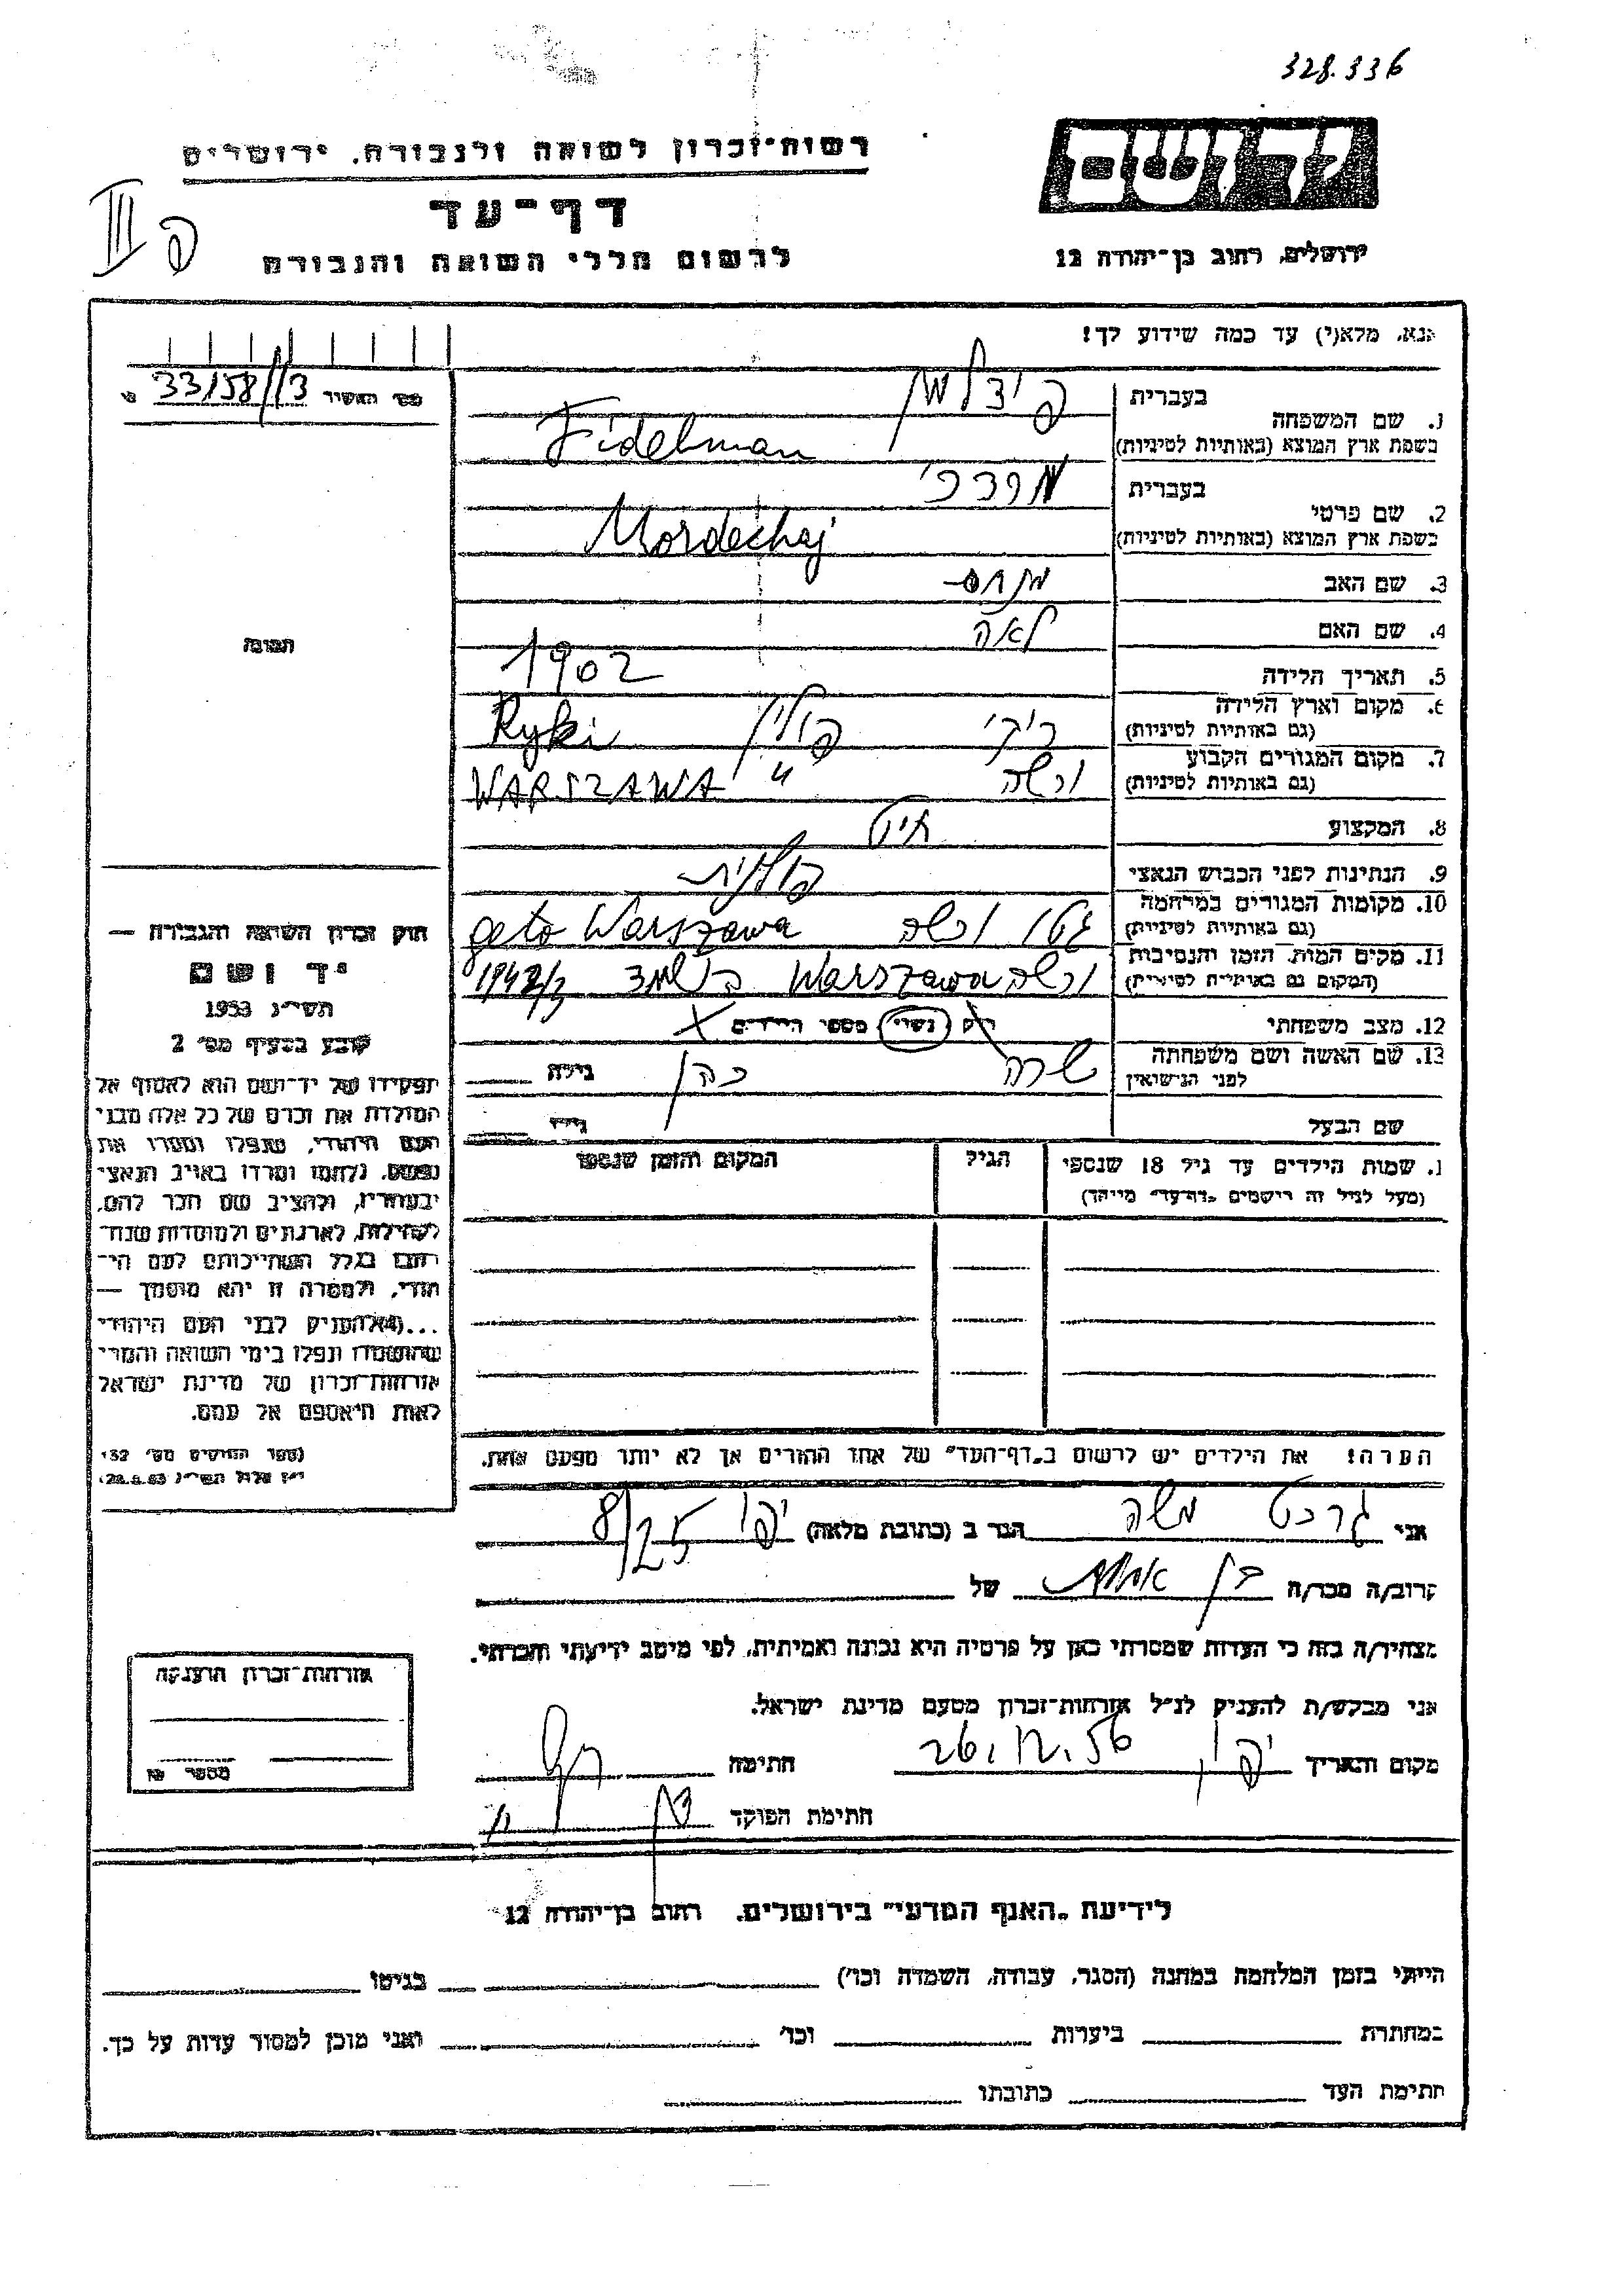 328.336
רשות־זכרון לשואה ולגבורה, ירושלים
יד ושם
דף־עד
לרשום חללי השואה והגבורה
ירושלים, רחוב בן־יהודה 12
נא, מלא(י) עד כמה שידוע לך!
33/58//3
1. שם המשפחה
בעברית פידלמן
בשפת ארץ המוצא (באותיות לטיניות) Fidelman
2. שם פרטי
בעברית מרדכי
בשפת ארץ המוצא (באותיות לטיניות) Mordechaj
3. שם האב
4. שם האם לאה
5. תאריך הלידה 1902
6. מקום וארץ הלידה ריקי פולין Ryki
(גם באותיות לטיניות)
7. מקום המגורים הקבוע ורשה " WARSZAWA
(גם באותיות לטיניות)
8. המקצוע חיט
9. הנתינות לפני הכבוש הנאצי פולנית
10. מקומות המגורים במלחמה גטו ורשה geto Warszawa
(גם באותיות לטיניות)
11. מקום המות, הזמן והנסיבות ורשה Warszawa
(המקום גם באותיות לטיניות)
12. מצב משפחתי רוק נשוי מספר הילדים X
13. שם האשה ושם משפחתה שרה כהן גילה
לפני הנישואין
שם הבעל גילו
שמות הילדים עד גיל 18 שנספו הגיל המקום והזמן שנספו
(מעל לגיל זה רישמים „דף־עד" מיוחד)
הערה! את הילדים יש לרשום ב„דף־העד" של אחד ההורים אך לא יותר מפעם אחת.
תמונה
חוק זכרון השואה והגבורה —
יד ושם
תשי״ג 1953
קובע בסעיף מס׳ 2
תפקידו של יד־ושם הוא לאסוף אל
המולדת את זכרם של כל אלה מבני
העם היהודי, שנפלו ומסרו את
נפשם, נלחמו ומרדו באויב הנאצי
ובעוזריו, ולהציב שם וזכר להם,
לקהילות, לארגונים ולמוסדות שנח־
רבו בגלל השתייכותם לעם הי־
הודי, ולמטרה זו יהא מוסמך —
...(4) להעניק לבני העם היהודי
שהושמדו ונפלו בימי השואה והמרי
אזרחות־זכרון של מדינת ישראל
לאות היאספם אל עמם.
אני גרבט משה הגר ב (כתובת מלאה) יפו 8/25
קרוב/ה מכר/ה בן אחות של
מצהיר/ה בזה כי העדות שמסרתי כאן על פרטיה היא נכונה ואמיתית, לפי מיטב ידיעתי והכרתי.
אני מבקש/ת להעניק לנ״ל אזרחות־זכרון מטעם מדינת ישראל.
מקום ותאריך יפו, 26.12.56 חתימה
חתימת הפוקד
אזרחות־זכרון הוענקה
מספר
לידיעת „האגף המדעי" בירושלים, רחוב בן־יהודה 12
הייתי בזמן המלחמה במחנה (הסגר, עבודה, השמדה וכו׳) בגיטו
במחתרת ביערות וכו׳ ואני מוכן למסור עדות על כך.
חתימת העד כתובתו